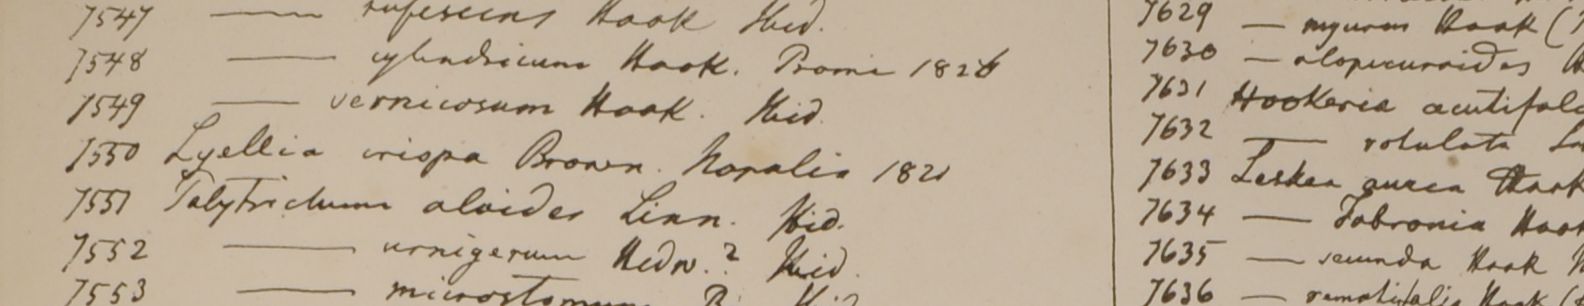 7547 —— rufescens Hook Ibid.
7548 —— cylindricum Hook. Prome 1826
7549 —— vernicosum Hook. Ibid.
7550 Lyellia crispa Brown. Napalia 1821
7551 Polytrichum aloides Linn. Ibid.
7552 —— urnigerum Hedw.? Ibid.
7553 —— microstomum Br. Ibid
7629 — myurum Hook (
7630 — alopecuroides
7631 Hookeria acutifol
7632 — rotulata
7633 Leskea aurea Hook
7634 — Fabronia Hook
7635 — secunda Hook
7636 — Hook (